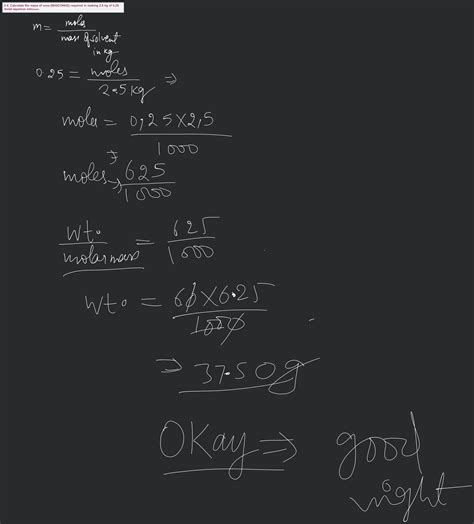 2.4. Calculate the mass of urea (NH2CONH2) required in making 2.5 kg of 0.25
molal aqueous solution.
m = moles
mass of solvent
in kg
0.25 = moles ⇒
2.5 kg
moles = 0,25 X 2,5
1000
moles → 625
1000
wt. = 625
molar mass 1000
wt. = 60 X 6.25
1000
⇒ 37.50 g
OKay ⇒ good
night